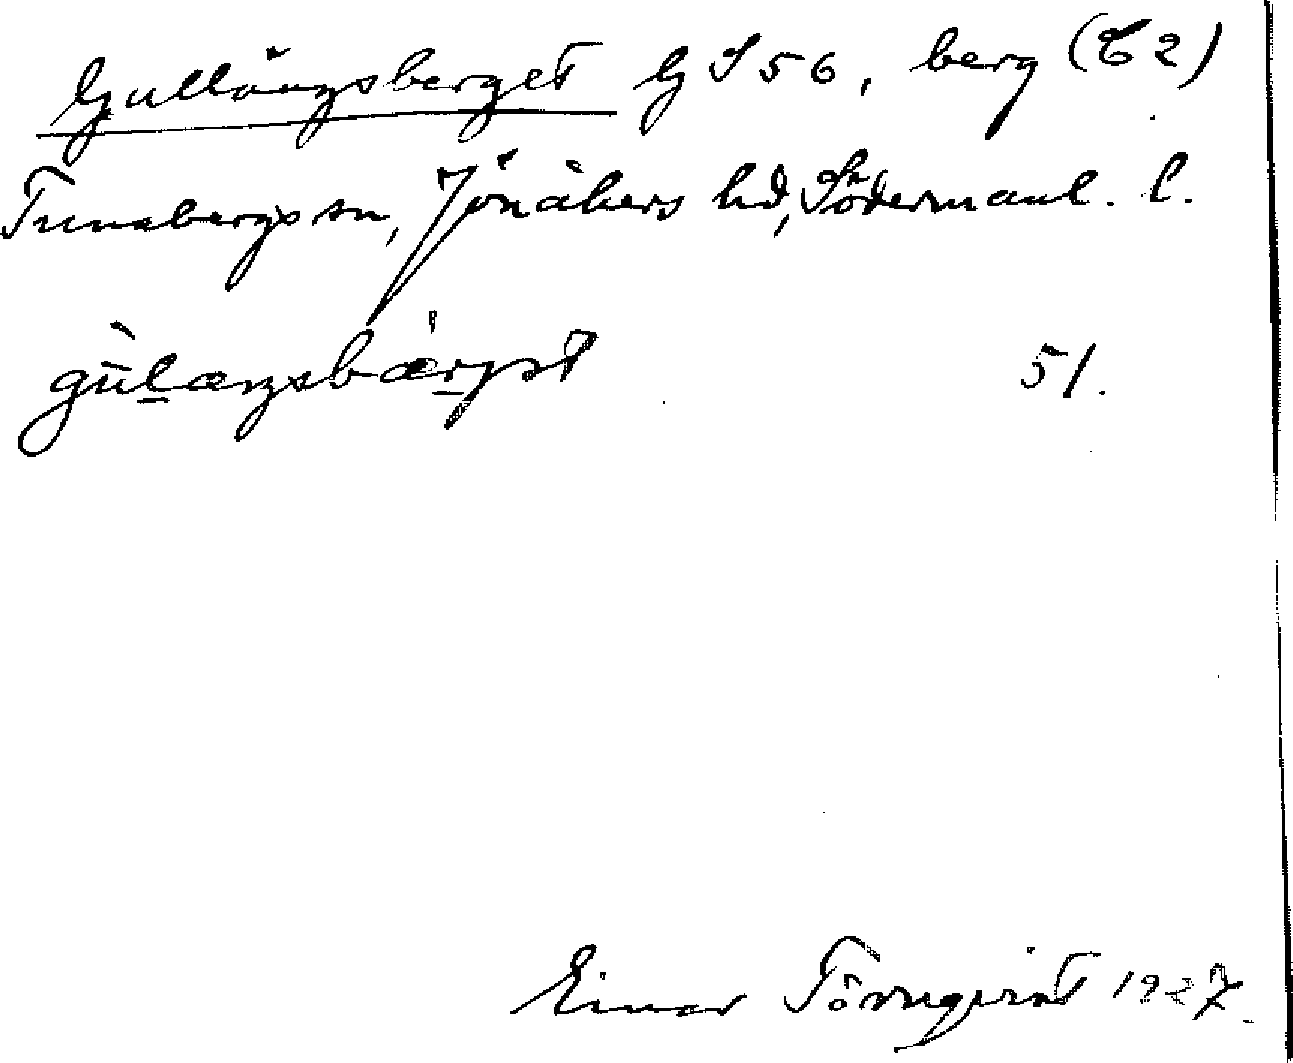 Gullängsberget GS 56, berg (C2)
Tunabergs sn, Jönåkers hd, Södermanl. l.
gùlæŋsbærjət 51.
Einar Törnqvist 1927.